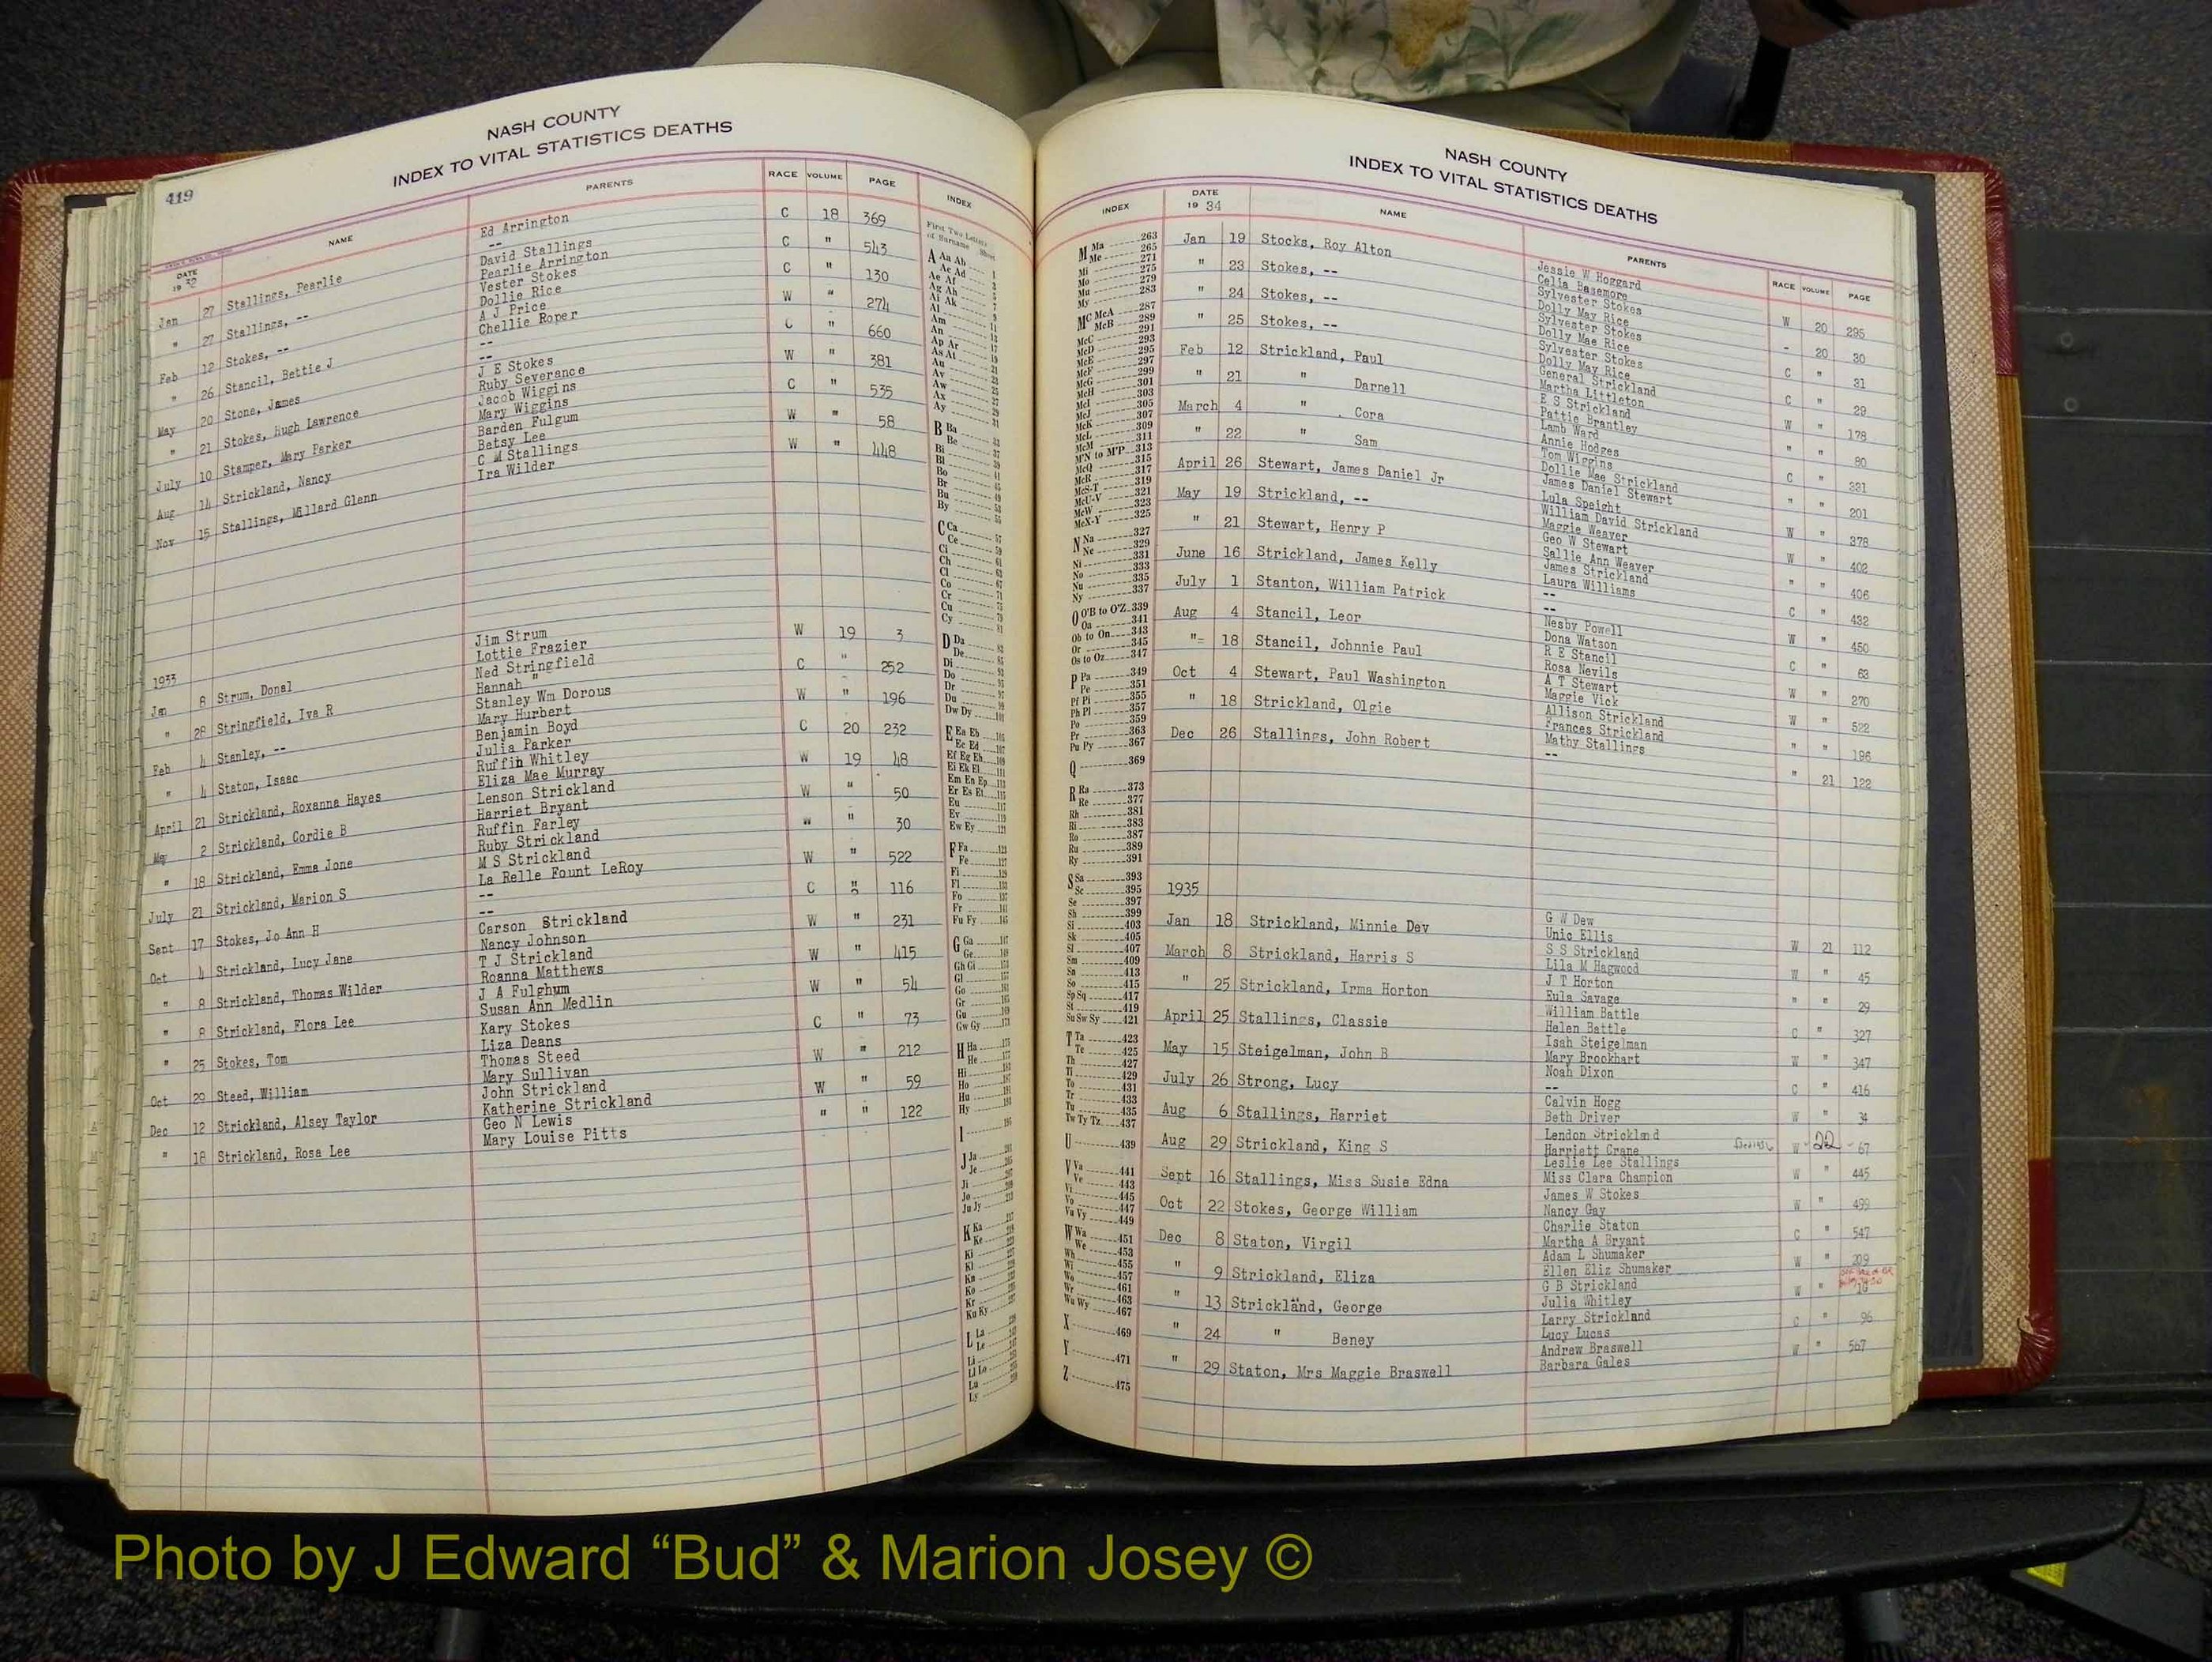 419
NASH COUNTY
INDEX TO VITAL STATISTICS DEATHS
DATE NAME PARENTS RACE VOLUME PAGE INDEX
19 32
Jan 27 Stallings, Pearlie Ed Arrington C 18 369
--
" 27 Stallings, -- David Stallings C " 543
Pearlie Arrington
Feb 12 Stokes, -- Vester Stokes C " 130
Dollie Rice
" 26 Stancil, Bettie J A J Price W " 274
Chellie Roper
May 20 Stone, James -- C " 660
--
" 21 Stokes, Hugh Lawrence J E Stokes W " 381
Ruby Severance
July 10 Stamper, Mary Parker Jacob Wiggins C " 535
Mary Wiggins
Aug 14 Strickland, Nancy Barden Fulgum W " 58
Betsy Lee
Nov 15 Stallings, Millard Glenn C M Stallings W " 448
Ira Wilder
1933
Jan 8 Strum, Donal Jim Strum W 19 3
Lottie Frazier
" 28 Stringfield, Iva R Ned Stringfield C " 252
Hannah "
Feb 4 Stanley, -- Stanley Wm Dorous W " 196
Mary Hurbert
" 4 Staton, Isaac Benjamin Boyd C 20 232
Julia Parker
April 21 Strickland, Roxanna Hayes Ruffin Whitley W 19 48
Eliza Mae Murray
May 2 Strickland, Cordie B Lenson Strickland W " 50
Harriet Bryant
" 18 Strickland, Emma Jone Ruffin Farley W " 30
Ruby Strickland
July 21 Strickland, Marion S M S Strickland W " 522
La Relle Fount LeRoy
Sept 17 Stokes, Jo Ann H -- C " 116
--
Oct 4 Strickland, Lucy Jane Carson Strickland W " 231
Nancy Johnson
" 8 Strickland, Thomas Wilder T J Strickland W " 415
Roanna Matthews
" 8 Strickland, Flora Lee J A Fulghum W " 54
Susan Ann Medlin
" 25 Stokes, Tom Kary Stokes C " 73
Liza Deans
Oct 29 Steed, William Thomas Steed W " 212
Mary Sullivan
Dec 12 Strickland, Alsey Taylor John Strickland W " 59
Katherine Strickland
" 18 Strickland, Rosa Lee Geo N Lewis " " 122
Mary Louise Pitts
First Two Letters
of Surname Sheet
A Aa Ab 1
Ac Ad
Ae Af
Ag Ah
Ai Ak
Al
Am 11
An
Ap Ar
As At
Au
Av
Aw
Ax
Ay
B Ba
Be
Bi
Bl
Bo
Br
Bu
By
C Ca
Ce
Ci
Ch
Cl
Co
Cr
Cu
Cy
D Da
De
Di
Do
Dr
Du
Dw Dy
E Ea Eb
Ec Ed
Ef Eg Eh
Ei Ek El
Em En Ep
Er Es Et
Eu
Ev
Ew Ey
F Fa
Fe
Fi
Fl
Fo
Fr
Fu Fy
G Ga
Ge
Gh Gi
Gl
Go
Gr
Gu
Gw Gy
H Ha
He
Hi
Ho
Hu
Hy
I
J Ja
Je
Ji
Jo
Ju Jy
K Ka
Ke
Ki
Kl
Kn
Ko
Kr
Ku Ky
L La
Le
Li
Ll Lo
Lu
Ly
NASH COUNTY
INDEX TO VITAL STATISTICS DEATHS
INDEX DATE NAME PARENTS RACE VOLUME PAGE
19 34
M Ma 263
Me 265
Mi 271
Mo 275
Mu 279
My 283
Mc McA 287
McB 289
McC 291
McD 293
McE 295
McF 297
McG 299
McH 301
McI 303
McJ 305
McK 307
McL 309
McM 311
M'N to M'P 313
McQ 315
McR 317
McS-T 319
McU-V 321
McW 323
McX-Y 325
N Na 327
Ne 329
Ni 331
No 333
Nu 335
Ny 337
O O'B to O'Z 339
Oa 341
Ob to On 343
Or 345
Os to Oz 347
P Pa 349
Pe 351
Pf Pi 355
Ph Pl 357
Po 359
Pr 363
Pu Py 367
Q 369
R Ra 373
Re 377
Rh 381
Ri 383
Ro 387
Ru 389
Ry 391
S Sa 393
Sc 395
Se 397
Sh 399
Si 403
Sk 405
Sl 407
Sm 409
Sn 413
So 415
Sp Sq 417
St 419
Su Sw Sy 421
T Ta 423
Te 425
Th 427
Ti 429
To 431
Tr 433
Tu 435
Tw Ty Tz 437
U 439
V Va 441
Ve 443
Vi 445
Vo 447
Vu Vy 449
W Wa 451
We 453
Wh 455
Wi 457
Wo 461
Wr 463
Wu Wy 467
X 469
Y 471
Z 475
Jan 19 Stocks, Roy Alton Jessie W Hoggard W 20 295
Celia Basemore
" 23 Stokes, -- Sylvester Stokes - 20 30
Dolly May Rice
" 24 Stokes, -- Sylvester Stokes C " 31
Dolly Mae Rice
" 25 Stokes, -- Sylvester Stokes C " 29
Dolly May Rice
Feb 12 Strickland, Paul General Strickland W " 178
Martha Littleton
" 21 " Darnell E S Strickland " " 80
Pattie Brantley
March 4 " Cora Lamb Ward C " 331
Annie Hodges
" 22 " Sam Tom Wiggins " " 201
Dollie Mae Strickland
April 26 Stewart, James Daniel Jr James Daniel Stewart W " 378
Lula Speight
May 19 Strickland, -- William David Strickland W " 402
Maggie Weaver
" 21 Stewart, Henry P Geo W Stewart " " 406
Sallie Ann Weaver
June 16 Strickland, James Kelly James Strickland C " 432
Laura Williams
July 1 Stanton, William Patrick -- W " 450
--
Aug 4 Stancil, Leor Nesby Powell C " 63
Dona Watson
"= 18 Stancil, Johnnie Paul R E Stancil W " 270
Rosa Nevils
Oct 4 Stewart, Paul Washington A T Stewart W " 522
Maggie Vick
" 18 Strickland, Olgie Allison Strickland " " 196
Frances Strickland
Dec 26 Stallings, John Robert Mathy Stallings " 21 122
--
1935
Jan 18 Strickland, Minnie Dev G W Dew W 21 112
Unic Ellis
March 8 Strickland, Harris S S S Strickland W " 45
Lila M Hagwood
" 25 Strickland, Irma Horton J T Horton " " 29
Eula Savage
April 25 Stallings, Classie William Battle C " 327
Helen Battle
May 15 Steigelman, John B Isah Steigelman W " 347
Mary Brookhart
July 26 Strong, Lucy Noah Dixon C " 416
--
Aug 6 Stallings, Harriet Calvin Hogg W " 34
Beth Driver
Aug 29 Strickland, King S Lendon Strickland W 22 67
Harriett Crane
Sept 16 Stallings, Miss Susie Edna Leslie Lee Stallings W " 445
Miss Clara Champion
Oct 22 Stokes, George William James W Stokes W " 499
Nancy Gay
Dec 8 Staton, Virgil Charlie Staton C " 547
Martha A Bryant
" 9 Strickland, Eliza Adam L Shumaker W " 209
Ellen Eliz Shumaker
" 13 Strickland, George G B Strickland W " 16
Julia Whitley
" 24 " Beney Larry Strickland C " 96
Lucy Lucas
" 29 Staton, Mrs Maggie Braswell Andrew Braswell W " 567
Barbara Gales
Photo by J Edward “Bud” & Marion Josey ©